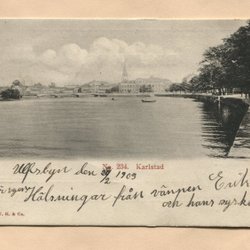 No. 234. Karlstad
Ulfsbyn den 24/2 1903
Hälsningar från vännen Erik
och hans syskon
& Co.